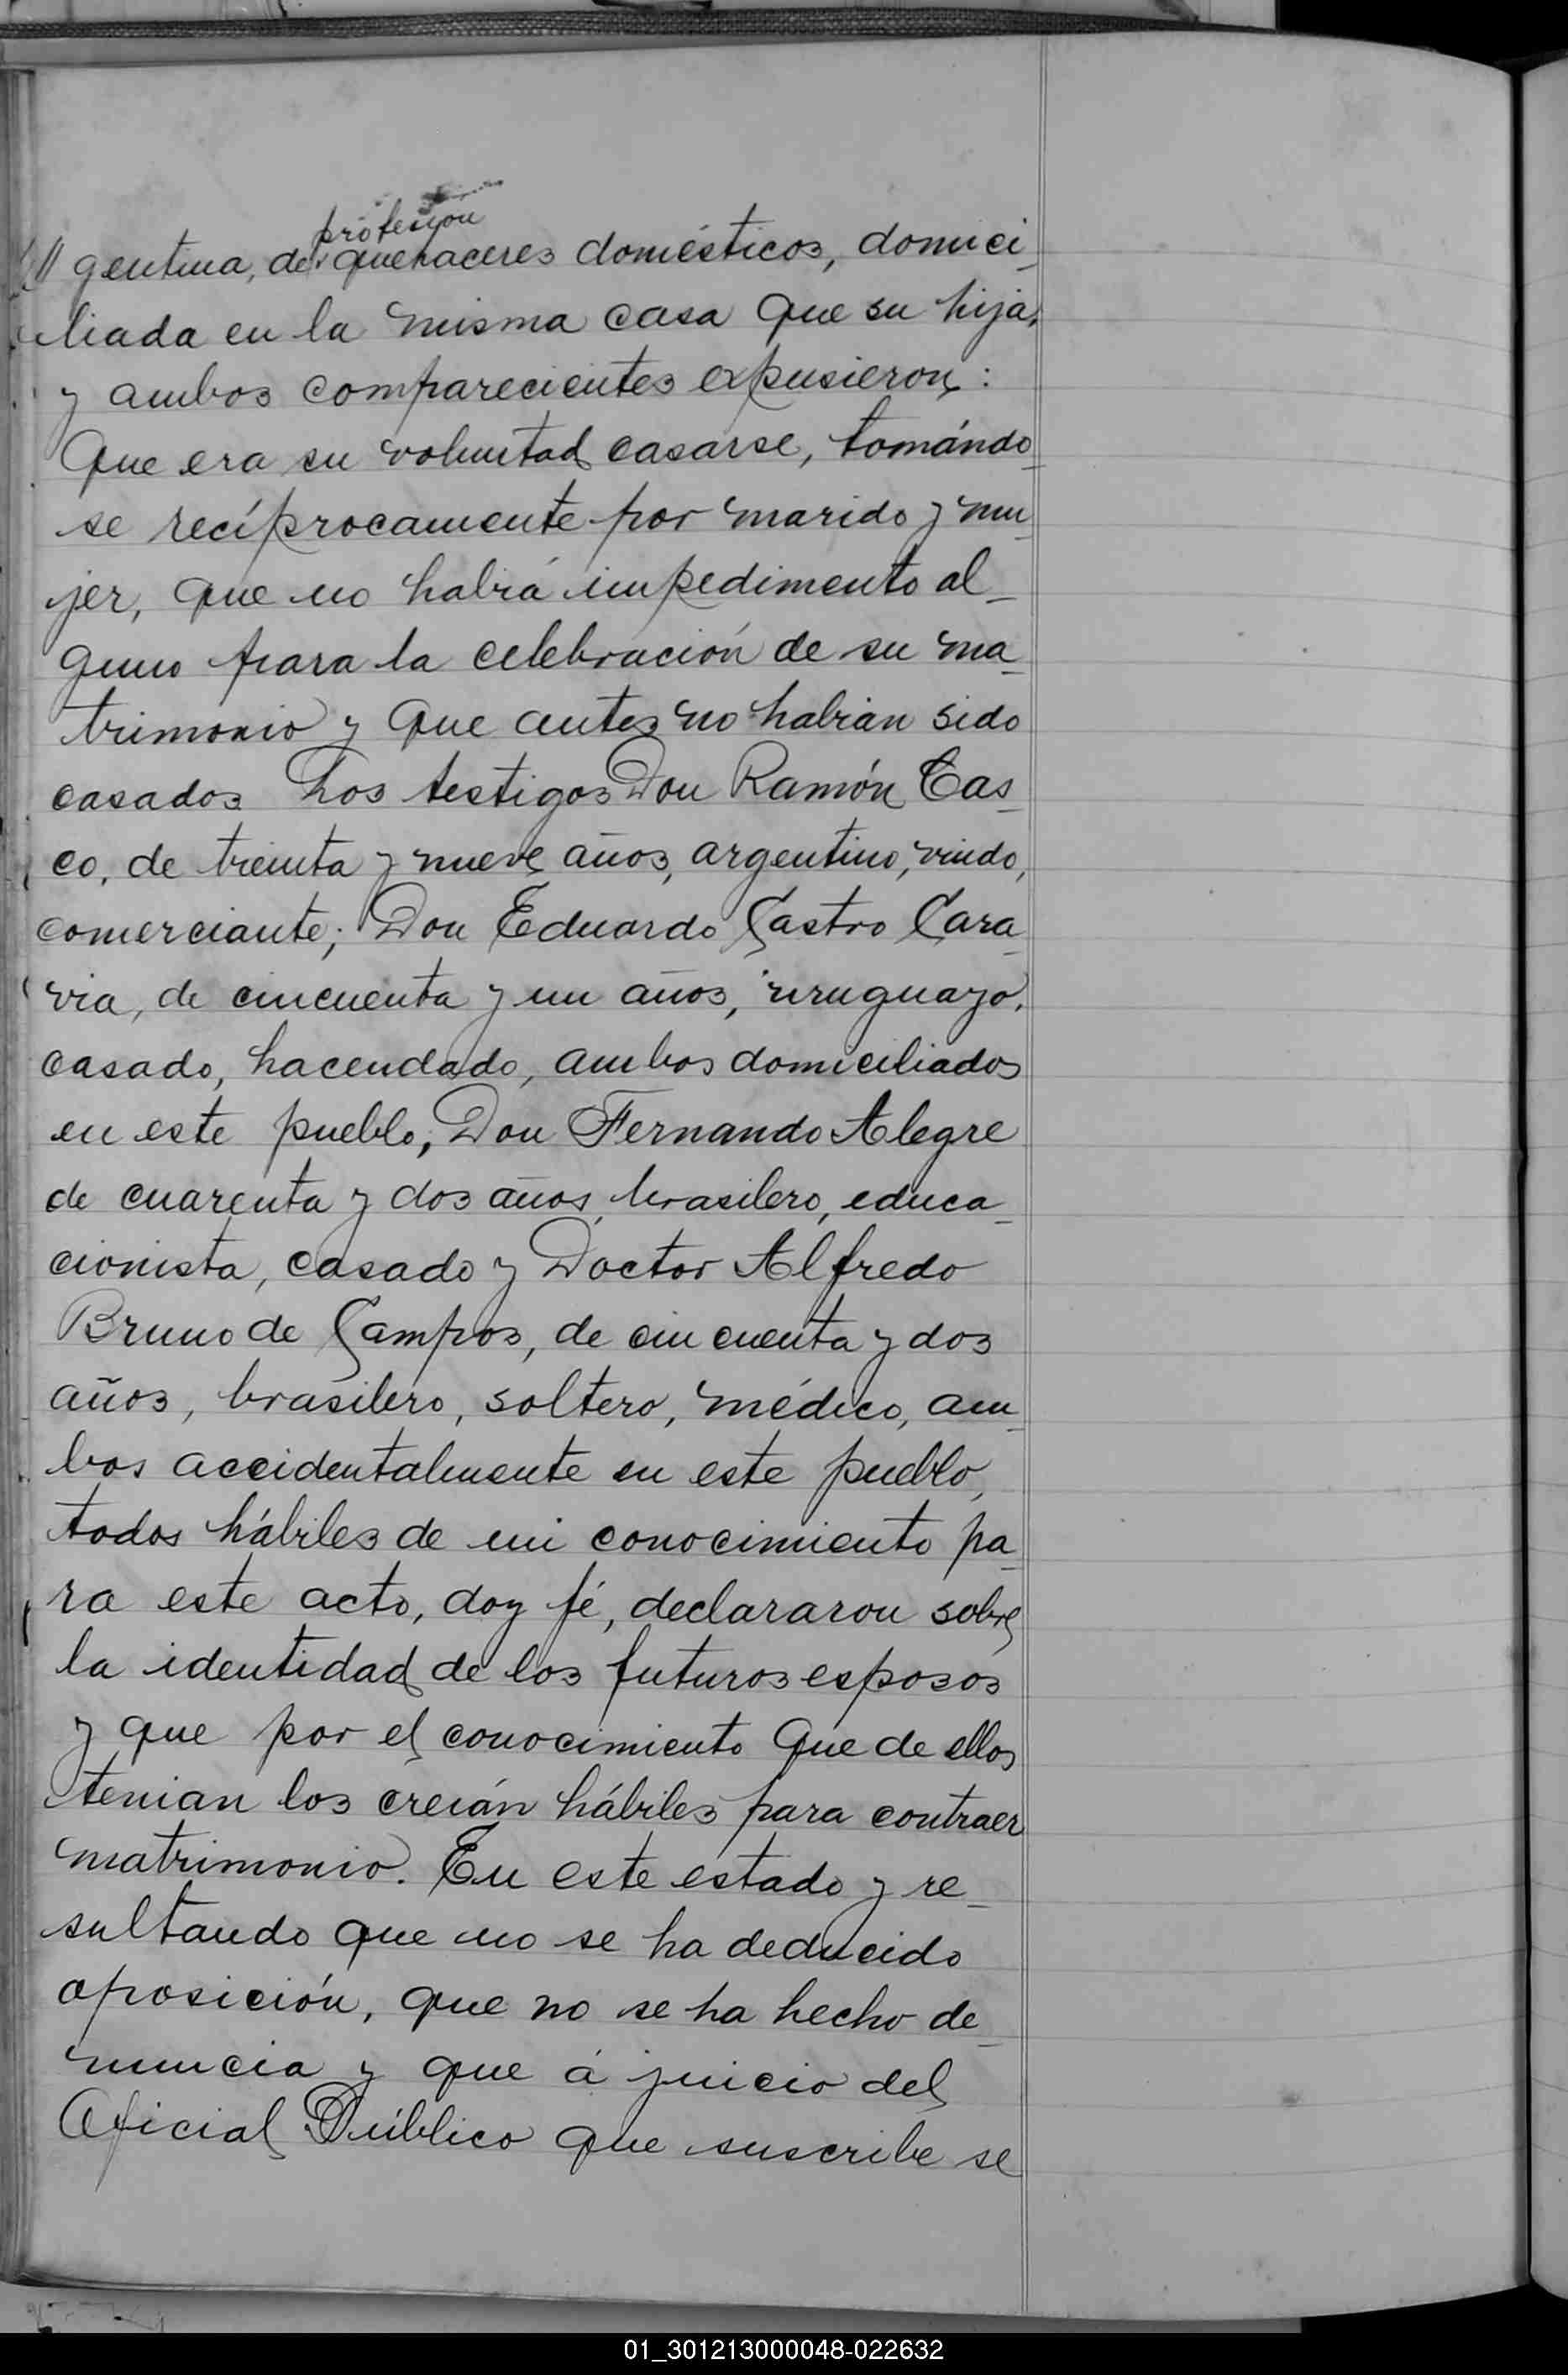 profesión
// gentina, de quehaceres domésticos, domici_
liada en la misma casa que su hija,
y ambos comparecientes expusieron:
Que era su voluntad casarse, tomándo_
se recíprocamente por marido y mu_
jer, que no habiá impedimento al_
guno para la celebración de su ma_
trimonio y que antes no habián sido
casados Los testigos Don Ramón Cas_
co, de treinta y nueve años, argentino, viudo,
comerciante; Don Eduardo Castro Cara_
via, de cincuenta y un años, uruguayo,
casado, hacendado, ambos domiciliados
en este pueblo; Don Fernando Alegre
de cuarenta y dos años, brasilero, educa_
cionista, casado y Doctor Alfredo
Bruno de Campos, de cincuenta y dos
años, brasilero, soltero, médico, am_
bos accidentalmente en este pueblo,
todos hábiles de mi conocimiento pa_
ra este acto, doy fé, declararon sobre
la identidad de los futuros esposos
y que por el conocimiento que de ellos
tenian los creián hábiles para contraer
matrimonio. En este estado y re_
sultando que no se ha deducido
oposición, que no se ha hecho de_
nuncia y que á juicio del
Oficial Público que suscribe se
01_301213000048-022632